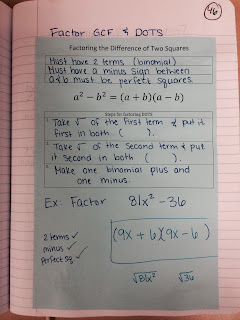 46
Factor GCF & DOTS
Factoring the Difference of Two Squares
Must have 2 terms (binomial)
Must have a minus sign between
a & b must be perfect squares.
a² - b² = (a + b)(a - b)
Steps for factoring DOTS
1. Take √ of the first term & put it
first in both ( ).
2. Take √ of the second term & put
it second in both ( ).
3. Make one binomial plus and
one minus.
Ex: Factor 81x² - 36
2 terms ✓
minus ✓
perfect sq ✓
(9x + 6)(9x - 6)
√81x² √36